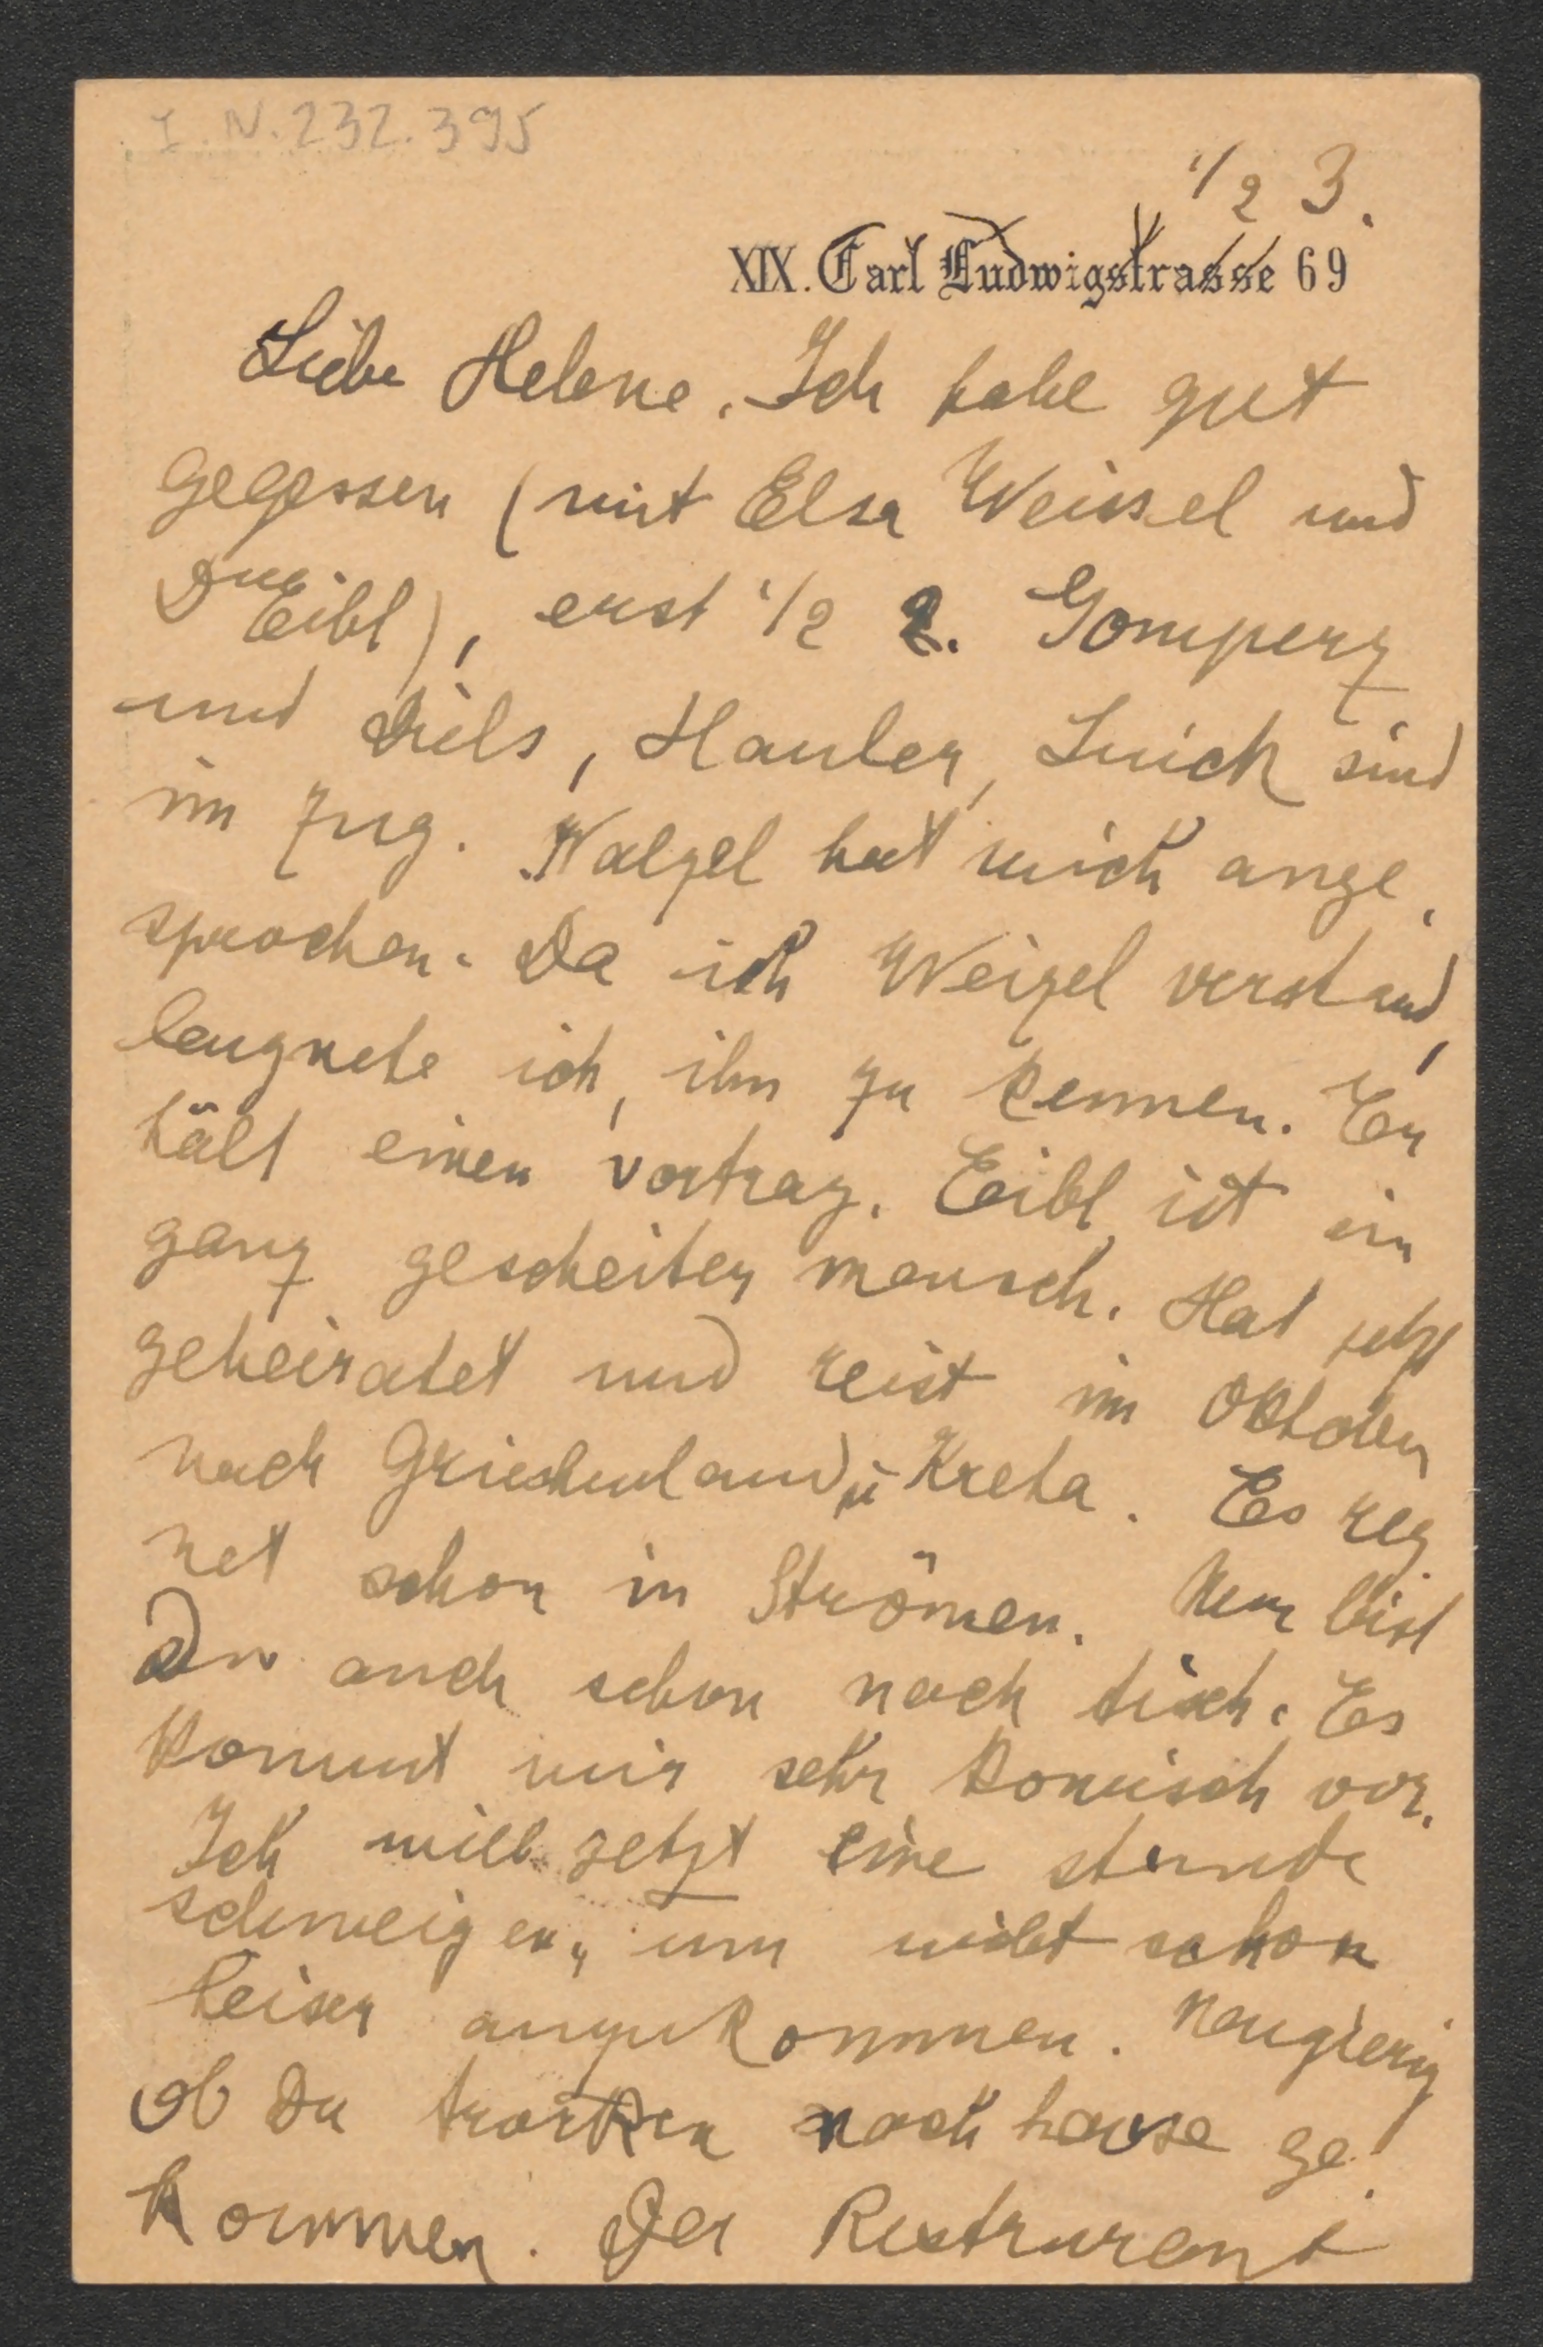 I.N. 232.395
1/2 3.
XIX. Carl Ludwigstrasse 69
Liebe Helene. Ich habe gut
gegessen (mit Elsa Weissel und
Eibl), erst 1/2 2. Gomperz
und Diels, Hauler, Luick sind
im Zug. Walzel hat mich ange
sprochen. Da ich Weizel verstand,
leugnete ich, ihn zu kennen. Er
hält einen vortrag. Eibl ist ein
ganz gescheiter mensch. Hat jetzt
geheiratet und reist im Oktober
nach Griechenland u Kreta. Es reg
net schon in Strömen. Nun bist
Du auch schon nach tisch. Es
kommt mir sehr komisch vor.
Ich will jetzt eine stunde
schweigen, um nicht schon
heiser anzukommen. Neugierig
ob Du trocken nach hause ge
kommen. Der Restaurant